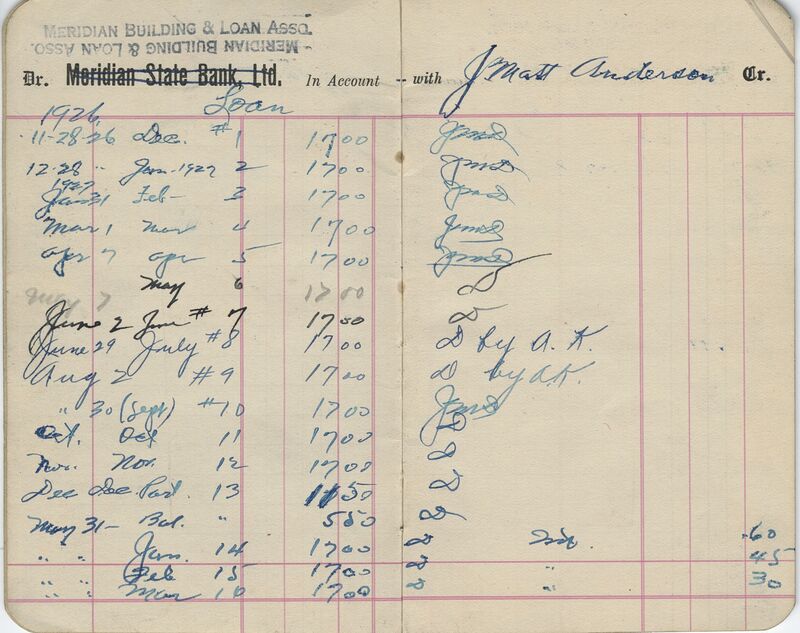 MERIDIAN BUILDING & LOAN ASSO.
MERIDIAN BUILDING & LOAN ASSO.
Dr. Meridian State Bank, Ltd. In Account -- with J Matt Anderson Cr.
1926, Loan
11-28-26 Dec. #1 17 00
12-28 " Jan. 1927 2 17 00
1927
Jan 31 Feb - 3 17 00
Mar 1 Mar 4 17 00
Apr 7 Apr 5 17 00
May 7 May 6 17 00
June 2 June #7 17 00
June 29 July #8 17 00 D by A. K.
Aug 2 #9 17 00 D by A.K.
" 30 (Sept) #10 17 00
Oct. Oct 11 17 00 D
Nov. Nov. 12 17 00 D
Dec Dec. Part. 13 11 50 D
May 31- Bal. " 5 50 D
" " Jan. 14 17 00 D .60
" " Feb 15 17 00 D " 45
" " Mar 16 17 00 D " 30